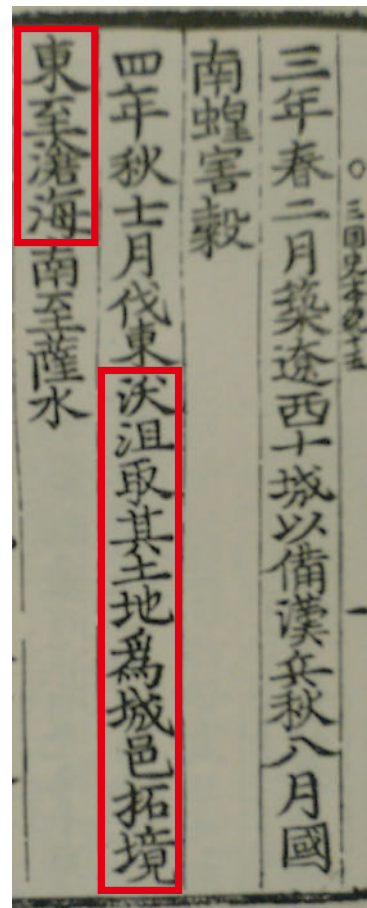 三国史本紀十五
三年春二月築遼西十城以備漢兵秋八月國
南蝗害穀
四年秋士月伐東沃沮取其土地爲城邑拓境
東至滄海南至薩水